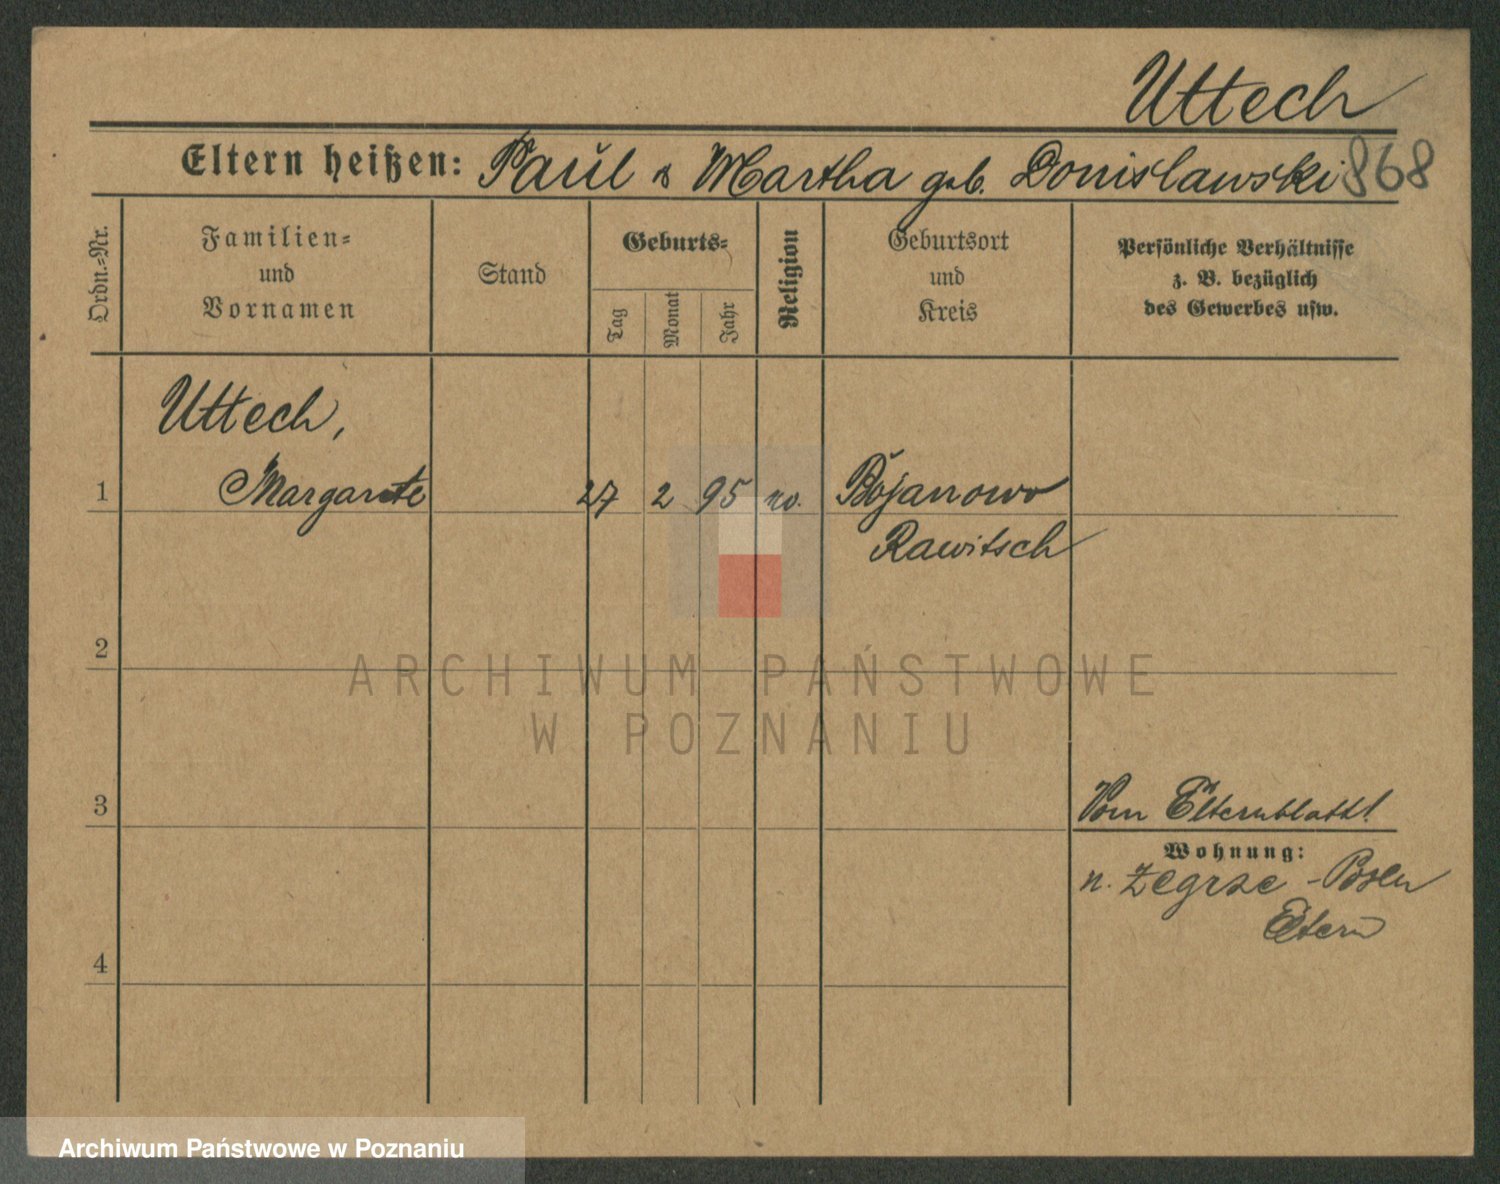 Uttech
Eltern heißen: Paul & Martha geb. Donislawski 868
Ordn.-Nr.
Familien-
und
Vornamen
Stand
Geburts-
Tag
Monat
Jahr
Religion
Geburtsort
und
Kreis
Persönliche Verhältnisse
z. B. bezüglich
des Gewerbes usw.
Uttech,
1 Margarete 27 2 95 Bojanowo
Rawitsch
2
ARCHIWUM PAŃSTWOWE
W POZNANIU
3
Vom Elternblatt!
Wohnung:
n. Zegrze - Posen
Eltern
4
Archiwum Państwowe w Poznaniu